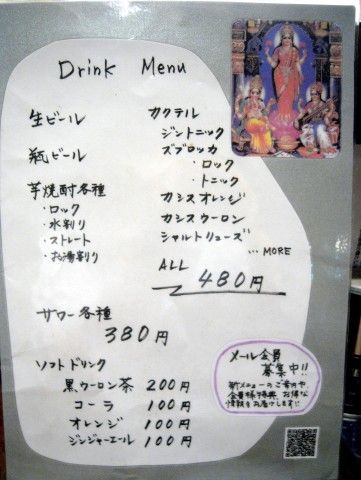 Drink Menu
生ビール
瓶ビール
芋焼酎各種
・ロック
・水割り
・ストレート
・お湯割り
カクテル
ジントニック
ズブロッカ
・ロック
・トニック
カシスオレンジ
カシスウーロン
シャルトリューズ
... MORE
ALL 480円
サワー各種
380円
ソフトドリンク
黒ウーロン茶 200円
コーラ 100円
オレンジ 100円
ジンジャーエール 100円
メール会員
募集中!!
新メニューのご案内や、
会員様特典 お得な
情報をお届けします!!